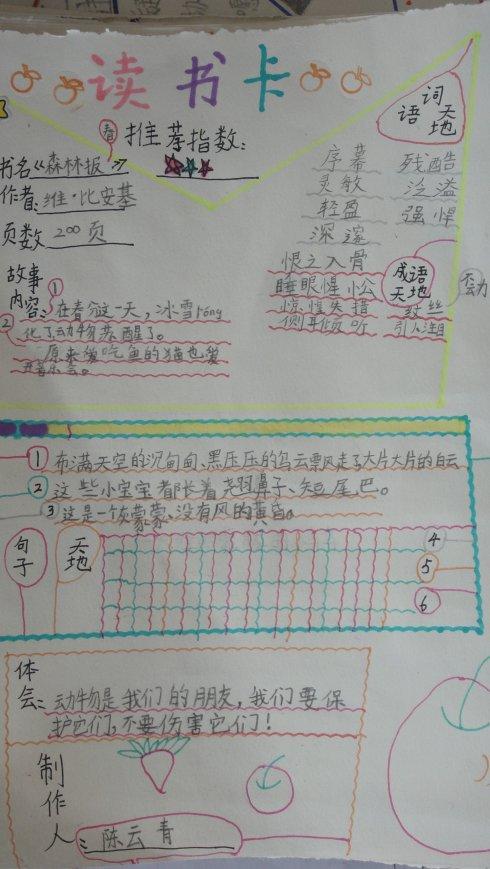 读书卡
推荐指数：
春
书名《森林报》
作者：维·比安基
页数 200页
故事内容：
① 在春分这一天，冰雪róng
化了动物苏醒了。
② 原来爱吃鱼的猫也爱
词语天地
序幕 残酷
灵敏 泛滥
轻盈 强悍
深邃
成语天地
恨之入骨
睡眼惺忪
惊惶失措 纹丝不动
侧耳倾听 引人注目
① 布满天空的沉甸甸、黑压压的乌云飘走了大片大片的白云
② 这些小宝宝都长着翘鼻子、短尾巴。
③ 这是一个灰蒙蒙、没有风的黄昏。
句子天地
④
⑤
⑥
体会：动物是我们的朋友，我们要保
护它们，不要伤害它们！
制作人：陈云青